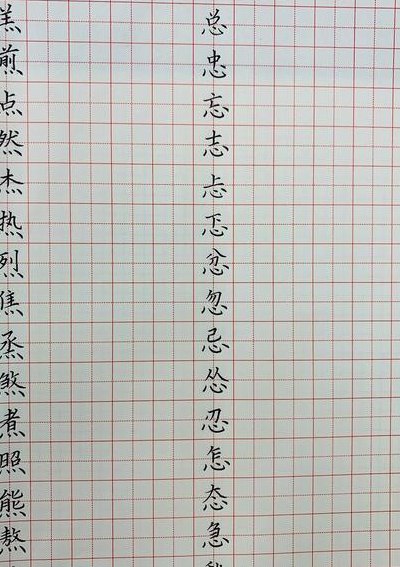 羔煎点然杰热烈焦烝煞煮照熊熬
总忠忘志忐忑忿忽忌怂忍怎态急